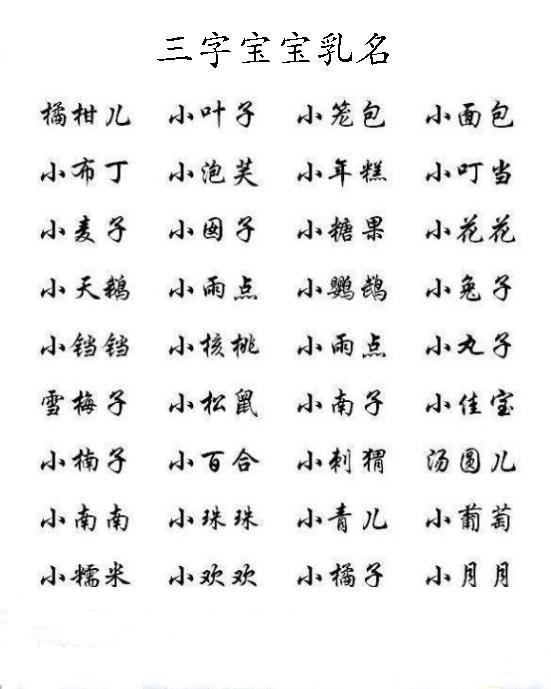 三字宝宝乳名
橘柑儿 小叶子 小笼包 小面包
小布丁 小泡芙 小年糕 小叮当
小麦子 小囡子 小糖果 小花花
小天鹅 小雨点 小鹦鹉 小兔子
小铛铛 小核桃 小雨点 小丸子
雪梅子 小松鼠 小南子 小佳宝
小楠子 小百合 小刺猬 汤圆儿
小南南 小珠珠 小青儿 小葡萄
小糯米 小欢欢 小橘子 小月月